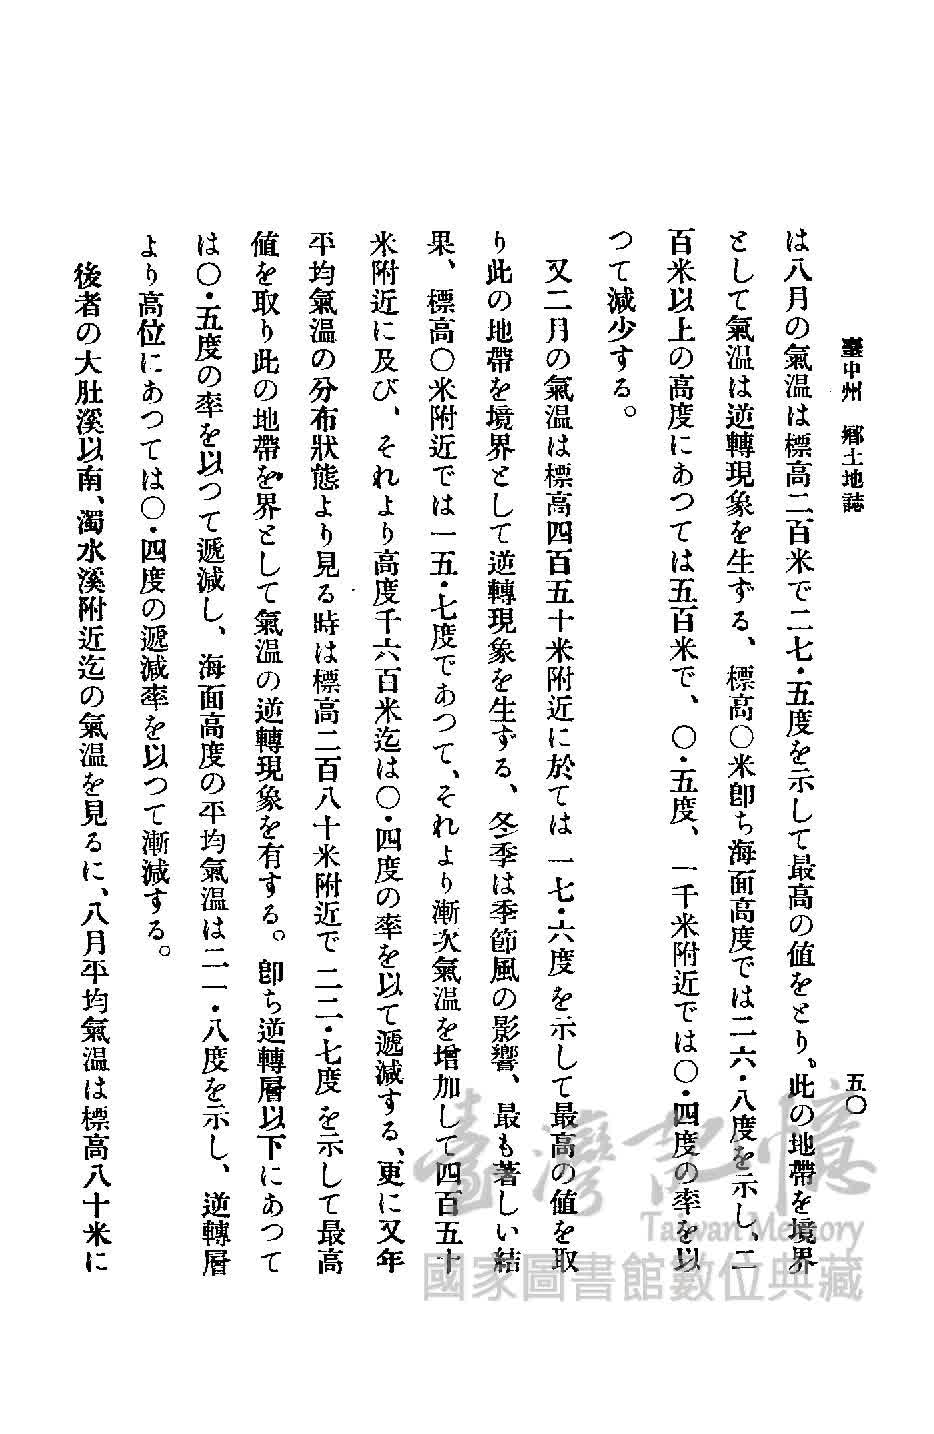 臺中州 鄕土地誌
五〇
は八月の氣溫は標高二百米で二七・五度を示して最高の値をとり、此の地帶を境界
として氣溫は逆轉現象を生ずる、標高〇米卽ち海面高度では二六・八度を示し、二
百米以上の高度にあつては五百米で、〇・五度、一千米附近では〇・四度の率を以
つて減少する。
又二月の氣溫は標高四百五十米附近に於ては一七・六度を示して最高の値を取
り此の地帶を境界として逆轉現象を生ずる、冬季は季節風の影響、最も著しい結
果、標高〇米附近では一五・七度であつて、それより漸次氣溫を增加して四百五十
米附近に及び、それより高度千六百米迄は〇・四度の率を以て遞減する、更に又年
平均氣溫の分布狀態より見る時は標高二百八十米附近で二二・七度を示して最高
値を取り此の地帶を界として氣溫の逆轉現象を有する。卽ち逆轉層以下にあつて
は〇・五度の率を以つて遞減し、海面高度の平均氣溫は二一・八度を示し、逆轉層
より高位にあつては〇・四度の遞減率を以つて漸減する。
後者の大肚溪以南、濁水溪附近迄の氣溫を見るに、八月平均氣溫は標高八十米に
臺灣記憶
Taiwan Memory
國家圖書館數位典藏